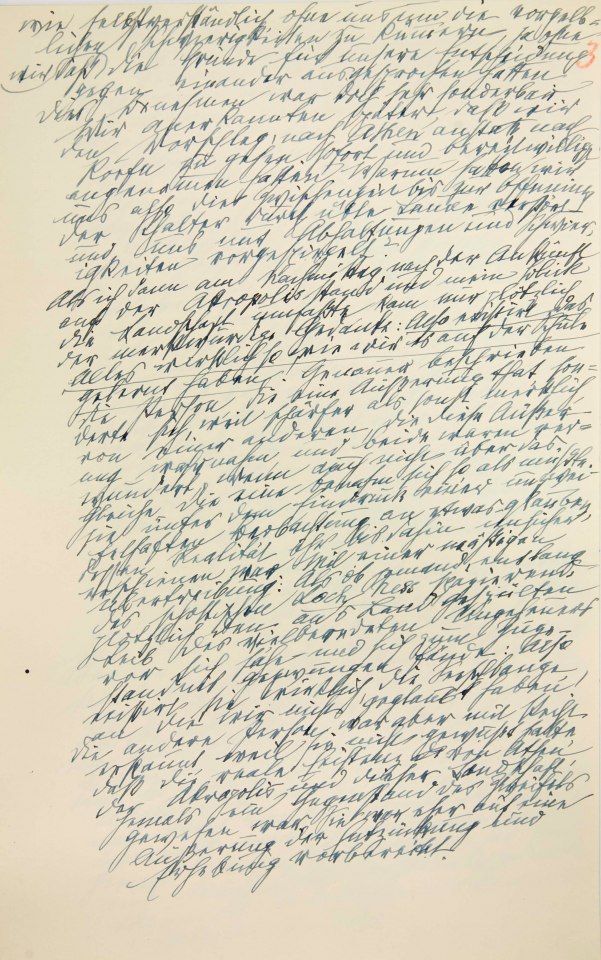 wie selbstverständlich ohne uns um die vorgeb=
lichen Schwierigkeiten zu kümmern, ja ohne 3
wir daß die Gründe für unsere Entscheidung
gegen einander ausgesprochen hätten
Dies Benehmen war doch sehr sonderbar
Wir anerkannten später, daß wir
den Vorschlag, nach Athen anstatt nach
Korfu zu gehen sofort und bereitwillig
angenommen hatten. Warum hatten wir
uns also die Zwischenzeit bis zur Öffnung
der Schalter durch üble Laune verstört
und uns nur Abhaltungen und Schwier=
igkeiten vorgespiegelt?
Als ich dann am Nachmittag nach der Ankunft
auf der Akropolis stand und mein Blick
die Landschaft umfaßte kam mir plötzlich
der merkwürdige Gedanke: Also existirt das
Alles wirklich so wie wir es auf der Schule
gelernt haben! Genauer beschrieben
die Person die eine Äußerung that son=
derte sich weit schärfer als sonst merklich
von einer anderen, die diese Äußer=
ung wahrnahm und beide waren ver=
wundert wenn auch nicht über das
Gleiche. Die eine benahm sich so als müßte
sie unter dem Eindruck einer unzwei=
felhaften Beobachtung an etwas glauben,
dessen Realität ihr bis dahin unsicher
erschienen war. Mit einer mäßigen
Übertreibung: Als ob jemand entlang
des schottischen Loch Ness spazierend
plötzlich den ans Land gespülten
Leib des vielberedeten Ungeheuers
vor sich sähe und sich zum Zuge=
ständnis gezwungen fände: Also
existirt sie wirklich die Seeschlange
an die wir nicht geglaubt haben!
Die andere Person war aber mit Recht
erstaunt weil sie nicht gewußt hatte
daß die reale Existenz von Athen,
der Akropolis und dieser Landschaft
jemals ein Gegenstand des Zweifels
gewesen war. Sie war eher auf eine
Äußerung der Entzückung und
Erhebung vorbereitet.